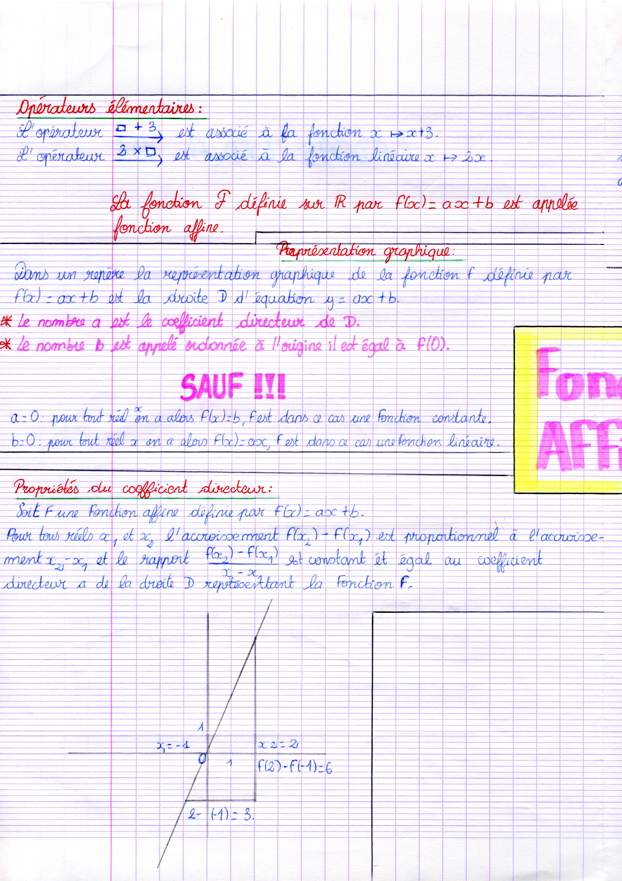 Opérateurs élémentaires:
L'opérateur □ + 3 est associé à la fonction x ↦ x+3.
L'opérateur 2 × □ est associé à la fonction linéaire x ↦ 2x.
La fonction F définie sur ℝ par f(x) = ax+b est appelée
fonction affine.
Représentation graphique:
Dans un repère la représentation graphique de la fonction f définie par
f(x) = ax+b est la droite D d'équation y = ax+b.
* Le nombre a est le coefficient directeur de D.
* Le nombre b est appelé ordonnée à l'origine il est égal à f(0).
SAUF !!!!
a=0: pour tout réel x on a alors f(x)=b, f est dans ce cas une fonction constante.
b=0: pour tout réel x on a alors f(x)=ax, f est dans ce cas une fonction linéaire.
Fon
AFF
Propriétés du coefficient directeur:
Soit F une fonction affine définie par f(x) = ax+b.
Pour tous réels x₁ et x₂ l'accroissement f(x₂) - f(x₁) est proportionnel à l'accroisse-
ment x₂-x₁ et le rapport f(x₂) - f(x₁) / x₂ - x₁ est constant et égal au coefficient
directeur a de la droite D représentant la Fonction F.
1
x₁=-1
x2=2
0
1
f(2)-f(-1)=6
2- (-1) = 3.